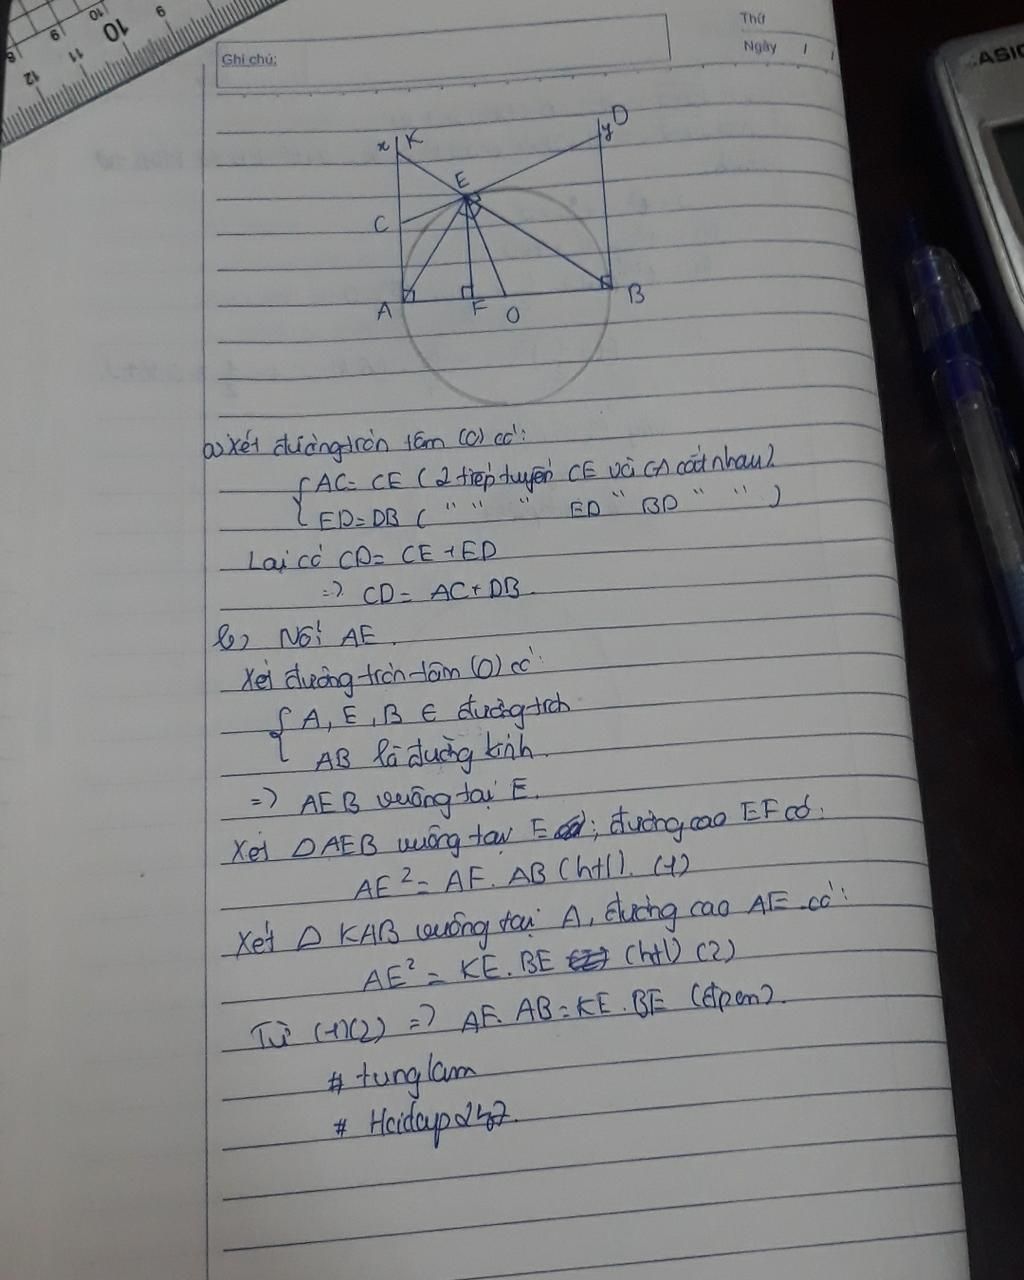 8 9 10 11 12
10 9
Thứ
Ngày / /
Ghi chú:
ASIO
x K
D
y
E
C
A F O B
a) Xét đường tròn tâm (O) có:
AC = CE (2 tiếp tuyến CE và CA cắt nhau)
ED = DB ( " " " ED " BD " " )
Lại có CD = CE + ED
=> CD = AC + DB.
b) Nối AE.
Xét đường tròn tâm (O) có:
A, E, B ∈ đường tròn
AB là đường kính.
=> AEB vuông tại E.
Xét Δ AEB vuông tại E; đường cao EF có:
AE² = AF. AB (htl). (1)
Xét Δ KAB vuông tại A, đường cao AE có:
AE² = KE. BE (htl) (2)
Từ (1)(2) => AF. AB = KE. BE (đpcm).
# tunglam
# Hoidap247.